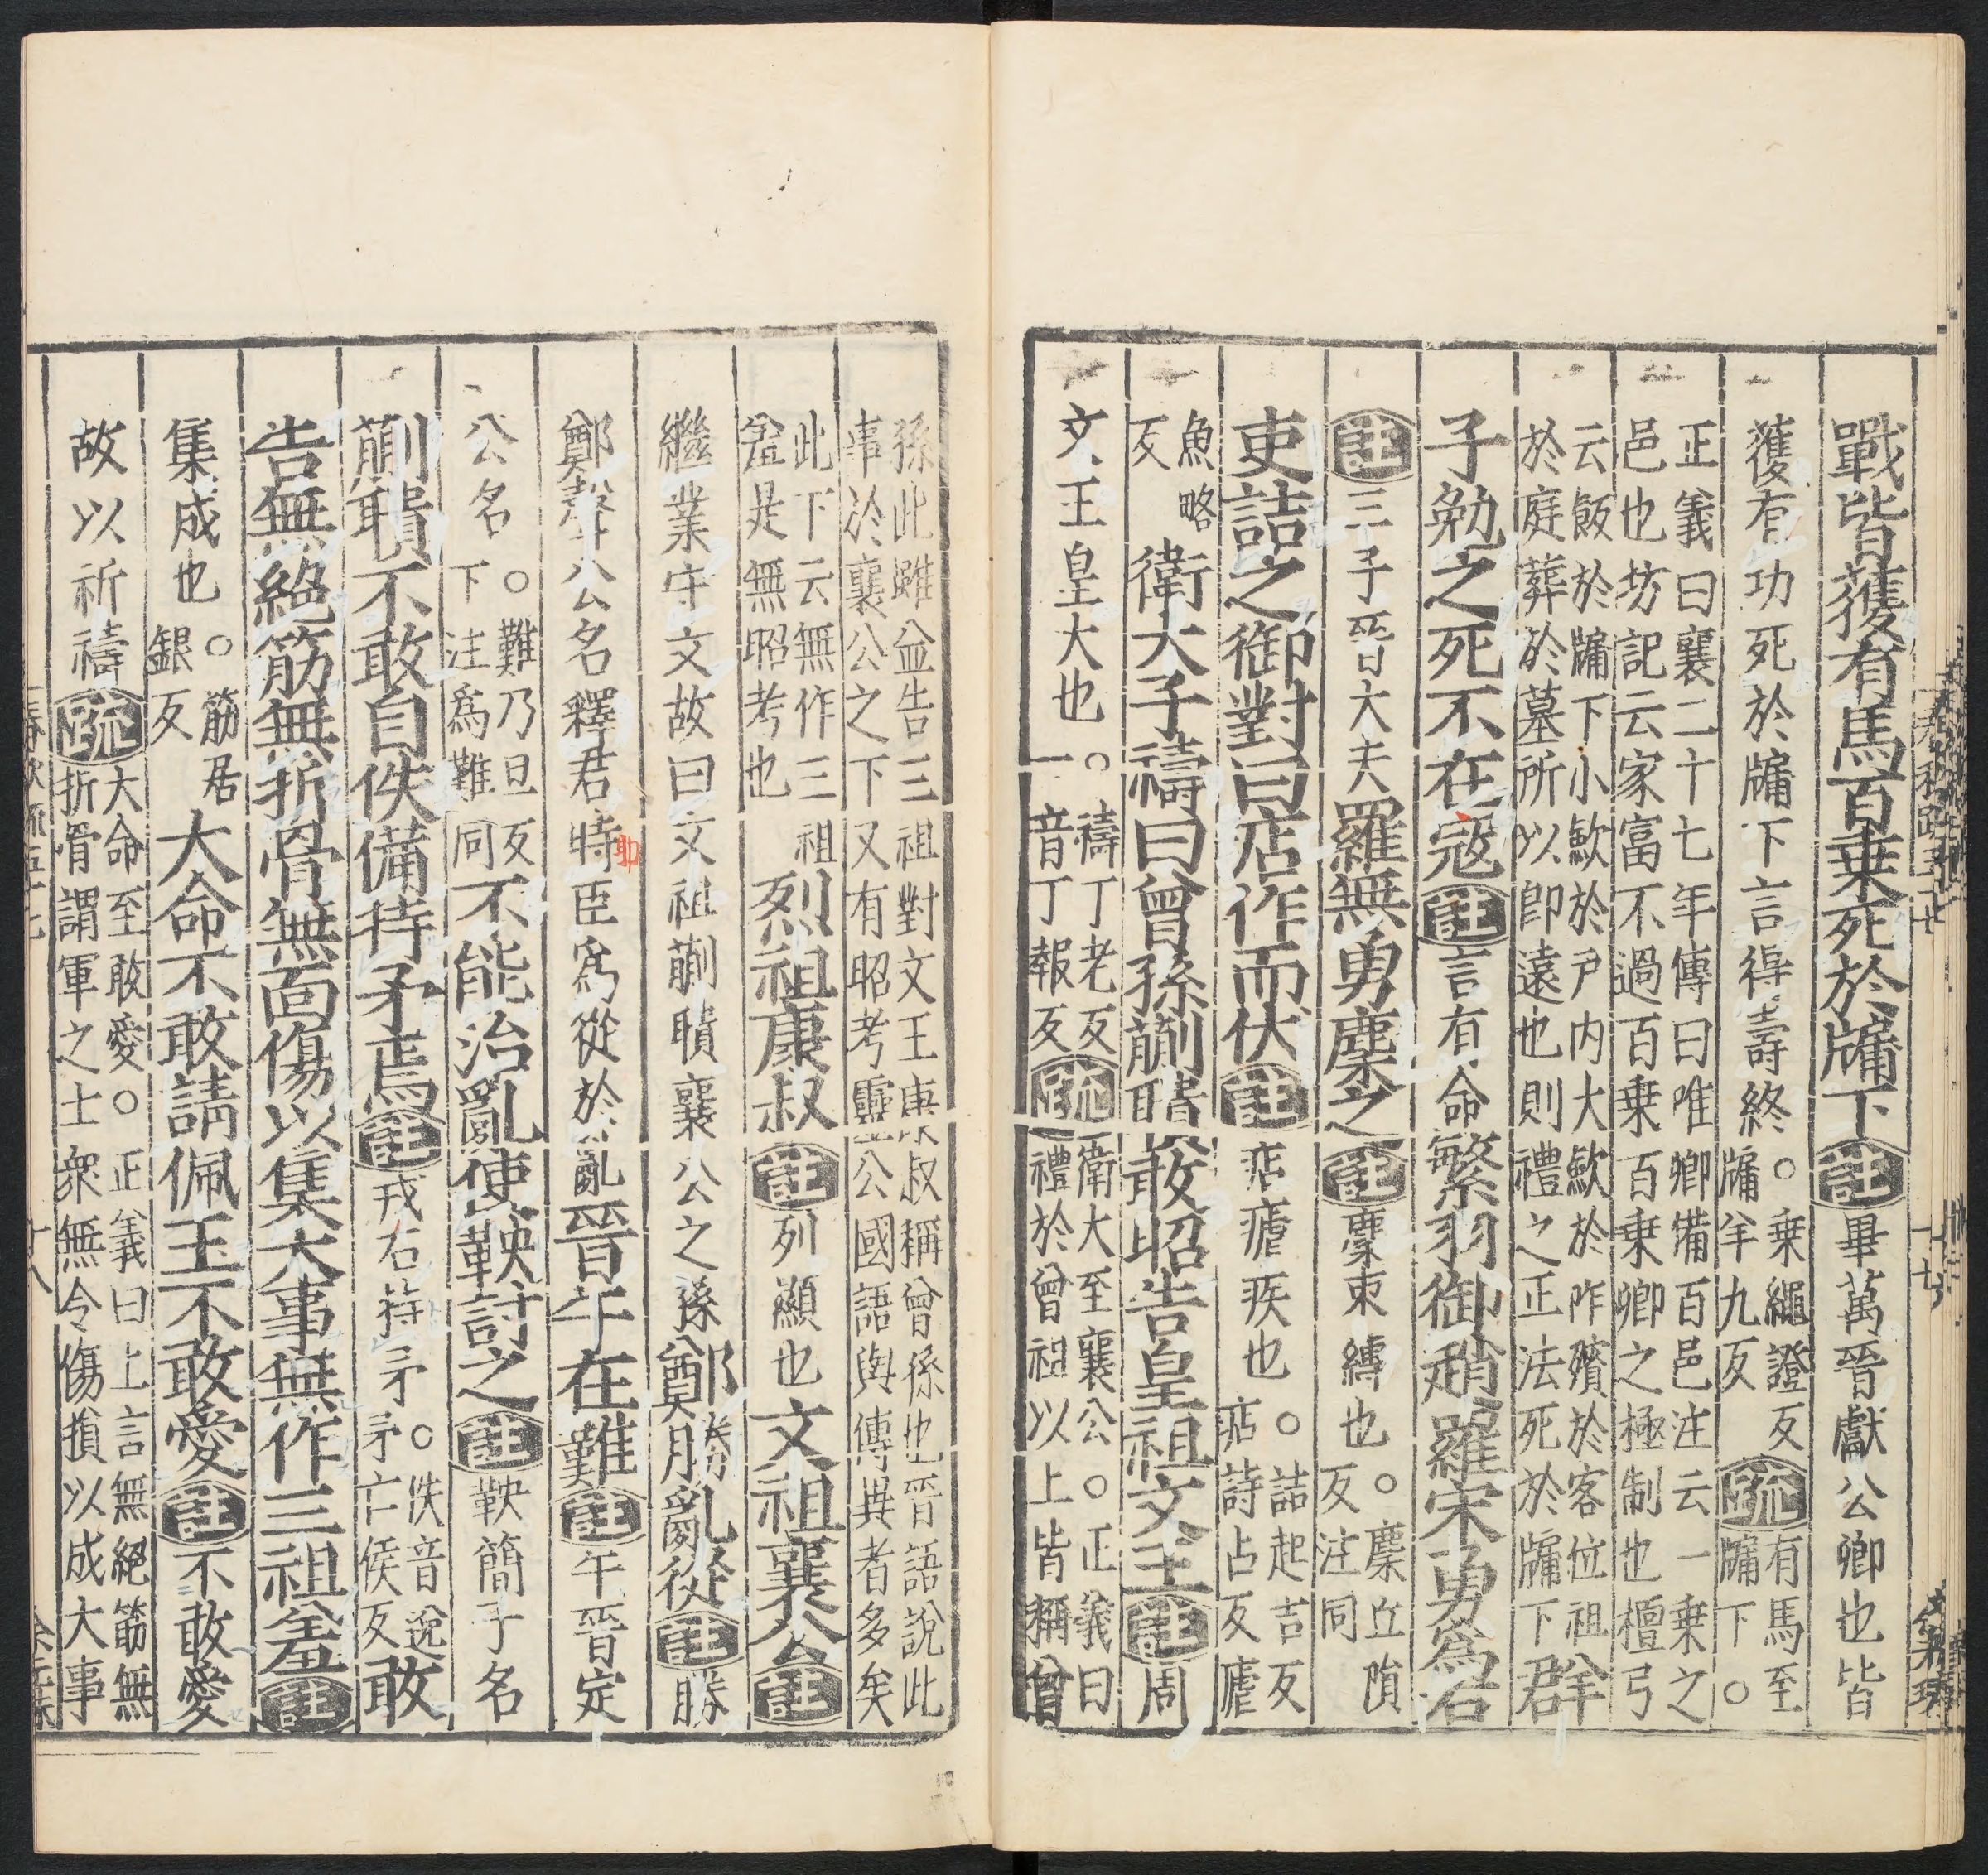 戰皆獲有馬百乗死於牖下註畢萬晉獻公卿也皆
獲有功死於牖下言得壽終○乗繩證反牖羊九反疏有馬至牖下○
正義曰襄二十七年傳曰唯卿備百邑注云一乗之
邑也坊記云家富不過百乗百乗卿之極制也檀弓
云飯於牖下小斂於戶内大斂於阼殯於客位祖
於庭葬於墓所以即遠也則禮之正法死於牖下群
子勉之死不在寇註言有命繁羽御趙羅宋勇為右
註三子晉大夫羅無勇麇之註麇束縛也○麇丘隕反注同
吏詰之御對曰痁作而伏註痁瘧疾也○詰起吉反痁詩占反瘧
魚略反衛大子禱曰曾孫蒯聵敢昭告皇祖文王註周
文王皇大也○禱丁老反一音丁報反疏衛大至襄公○正義曰禮於曾祖以上皆稱曾
孫此雖並告三祖對文王康叔稱曾孫也晉語說此
事於襄公之下又有昭考靈公國語與傳異者多矣
此下云無作三祖羞是無昭考也烈祖康叔註列顯也文祖襄公註
繼業守文故曰文祖蒯聵襄公之孫鄭勝亂從註勝
鄭聲公名釋君時臣為從於亂晉午在難註午晉定
公名○難乃旦反下注為難同不能治亂使鞅討之註鞅簡子名
蒯聵不敢自佚備持矛焉註戎右持矛○佚音逸矛亡侯反敢
告無絕筋無折骨無面傷以集大事無作三祖羞註
集成也○筋居銀反大命不敢請佩玉不敢愛註不敢愛
故以祈禱疏大命至敢愛○正義曰上言無絕筋無折骨謂軍之士衆無令傷損以成大事
助